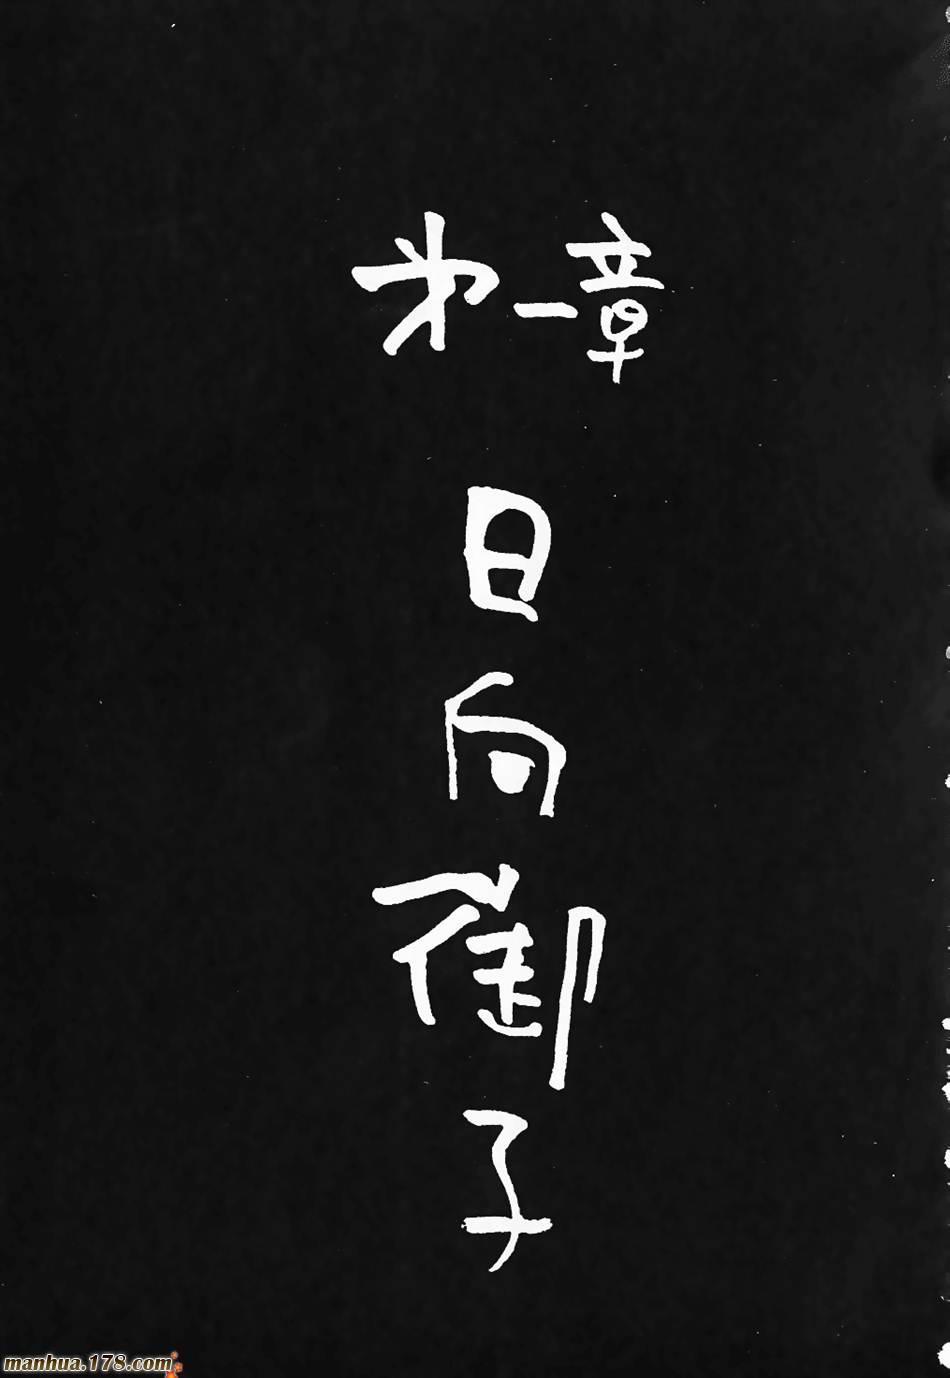 第一章
日向御子
manhua.178.com